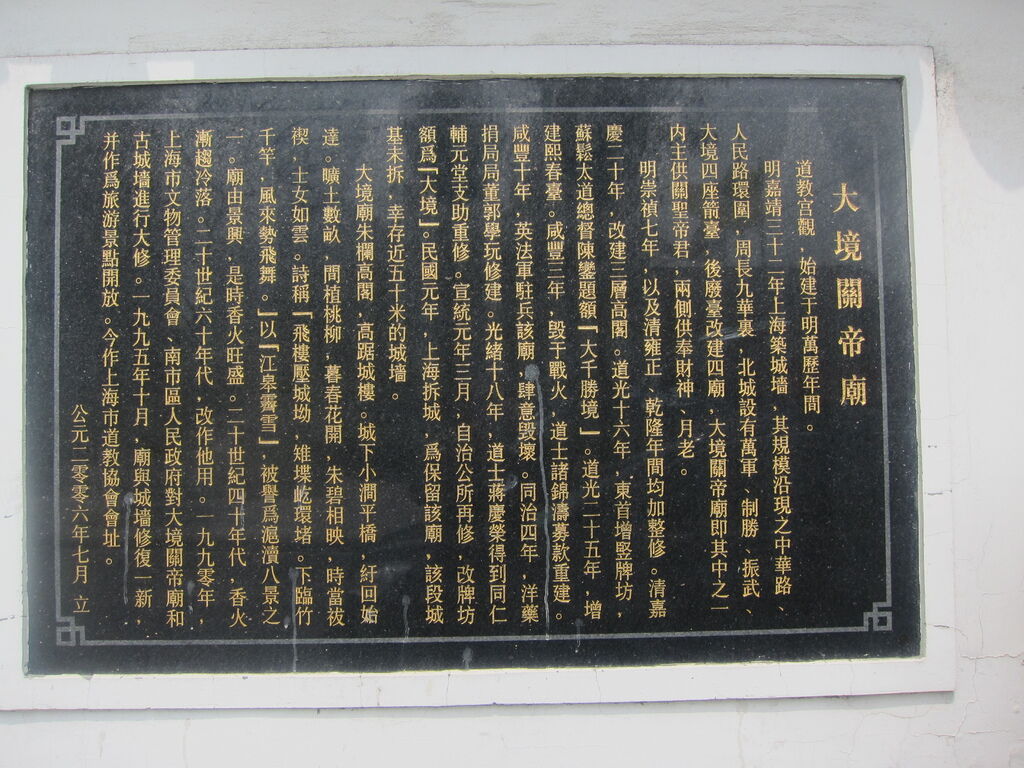 大境關帝廟
道教宫觀，始建于明萬歷年間。
明嘉靖三十二年上海築城墻，其規模沿現之中華路、
人民路環圍，周長九華裏，北城設有萬軍、制勝、振武、
大境四座箭臺，後廢臺改建四廟，大境關帝廟即其中之一
内主供關聖帝君，兩側供奉財神、月老。
明崇禎七年，以及清雍正、乾隆年間均加整修。清嘉
慶二十年，改建三層高閣。道光十六年，東首增堅牌坊，
蘇鬆太道總督陳鑾題額「大千勝境」。道光二十五年，增
建熙春臺。咸豐三年，毁于戰火，道士諸錦濤募款重建。
咸豐十年，英法軍駐兵該廟，肆意毁壞。同治四年，洋藥
捐局局董郭學玩修建。光緒十八年，道士蔣慶榮得到同仁
輔元堂支助重修。宣統元年三月，自治公所再修，改牌坊
額爲「大境」。民國元年，上海拆城，爲保留該廟，該段城
基未拆，幸存近五十米的城墻。
大境廟朱欄高閣，高踞城樓。城下小澗平橋，紆回始
達。曠土數畝，間植桃柳，暮春花開，朱碧相映，時當祓
禊，士女如雲。詩稱「飛樓壓城坳，雉堞屹環堵。下臨竹
千竿，風來勢飛舞。」以「江皋霽雪」，被譽爲滬瀆八景之
一。廟由景興，是時香火旺盛。二十世紀四十年代，香火
漸趨冷落。二十世紀六十年代，改作他用。一九九零年，
上海市文物管理委員會、南市區人民政府對大境關帝廟和
古城墻進行大修。一九九五年十月，廟與城墻修復一新，
并作爲旅游景點開放。今作上海市道教協會會址。
公元二零零六年七月 立